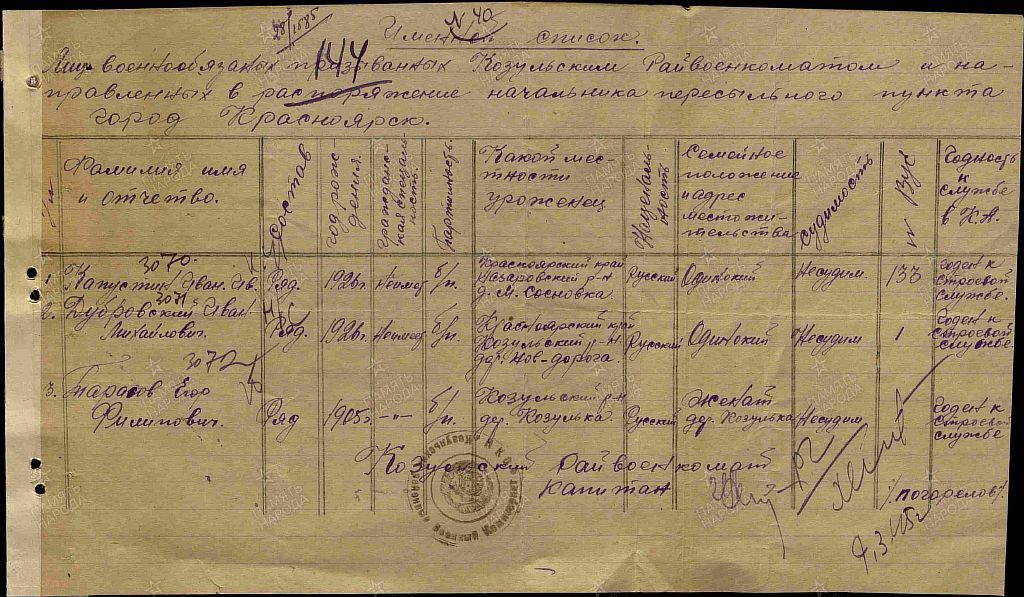 28/1585
№ 40
Именной список.
144
Лиц военнообязаных призыванных Козульским Райвоенкоматом и на-
правленных в распоряжение начальника пересыльного пункта
город Красноярск.
Фамилия имя и отчество.
Состав
год рожде-
дения.
Гражданс-
кая специаль
ность.
партийность.
Какой мес-
тности
урожденец
Националь-
ность
Семейное
положение
и адрес
местожи-
тельства
Судимость
№ ВУС
Годность
к
службе
в К.А.
3070.
1. Капустин Иван Ив. Ряд. 1926г. Неимеет б/п. Красноярский край Назаровский р-н д. М. Сосновка. Русский Одинокий Несудим. 133 годен к строевой службе.
3071
2. Дубровский Иван Михайлович. Ряд. 1926г. Неимеет б/п. Красноярский край Козульский р-н дер. Нов-дорога. Русский Одинокий Несудим 1 Годен к строевой службе.
3072
3. Тарасов Егор Филипович. Ряд 1905г. -"- б/п. Козульский р-н дер. Козулька. Русский женат дер. Козулька Несудим Годен к строевой службе
Козульский Райвоенкомат
Капитан
/Погарелов/.
9,3.45г
ПАМЯТЬ
НАРОДА